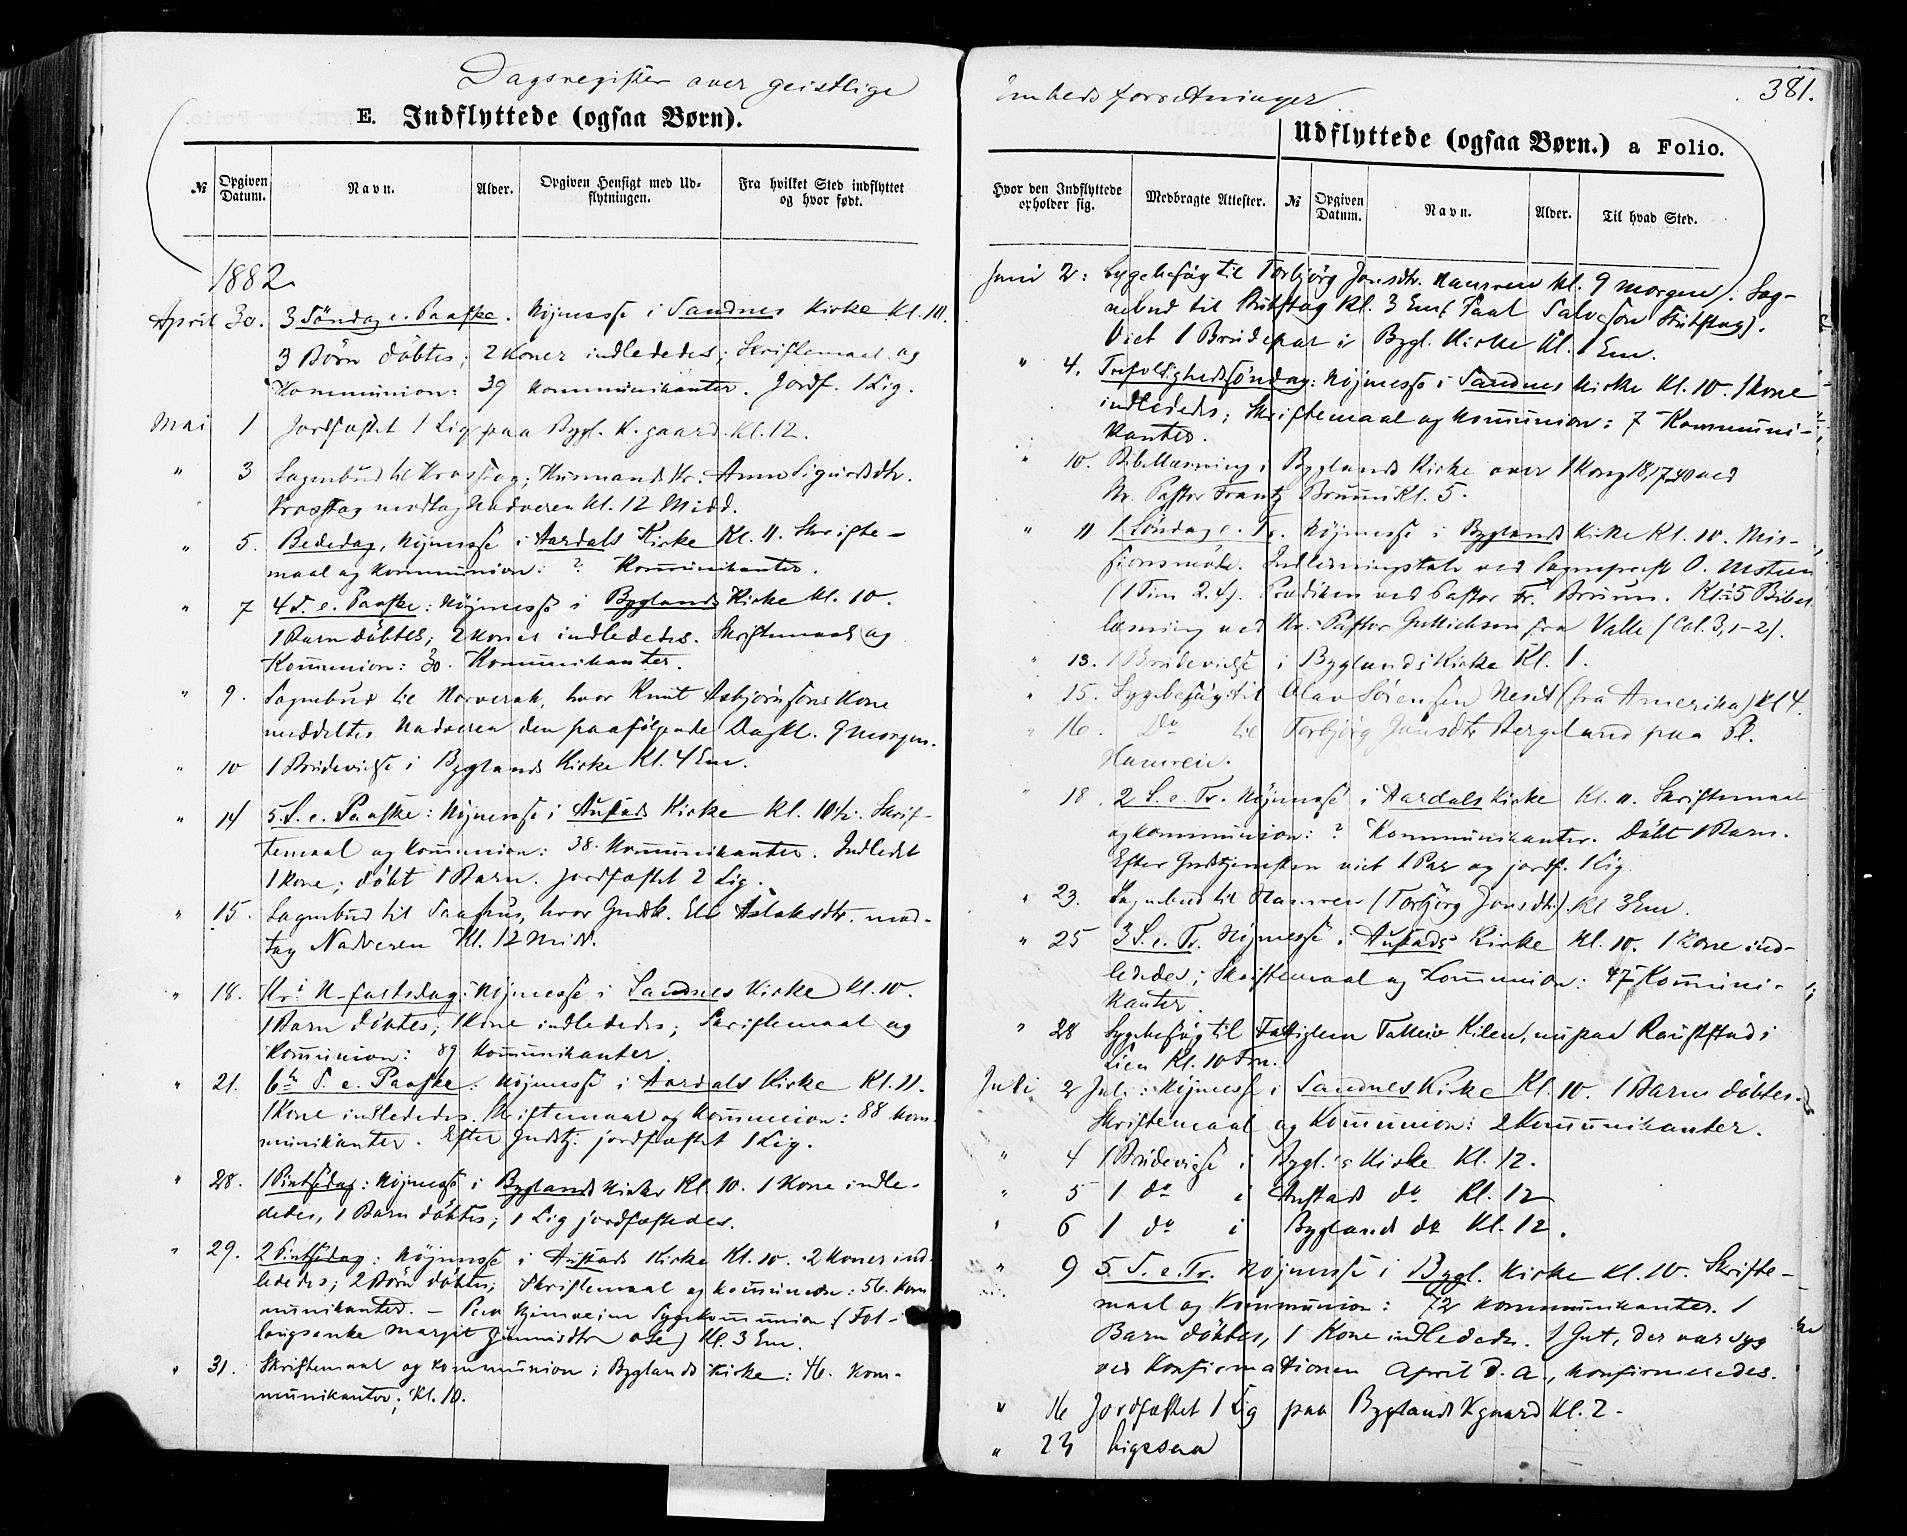 Dagsregister over geistlige
E. Indflyttede (ogsaa Børn).
№
Opgiven Datum.
Navn.
Alder.
Opgiven Hensigt med Udflytningen.
Fra hvilket Sted indflyttet og hvor født.
1882
April 30. 3 Söndag e. Paaske. Højmesse i Sandnes Kirke Kl. 10.
3 Börn döbtes; 2 Koner indlededes; Skriftemaal og
Kommunion: 39 Kommunikanter. Jordf. 1 Lig.
Mai 1 Jordfæstet 1 Lig paa Bygl. K. gaard Kl. 12.
" 3 Sognebud til ; Husmands K. Anne Sigurdsdtr.
modtog Nadveren Kl. 12 Midd.
" 5. Bededag, Højmesse i Aardals Kirke Kl. 11. Skrifte-
maal og Kommunion: ? Kommunikanter.
" 7 4 S. e. Paaske: Højmesse i Byglands Kirke Kl. 10.
1 Barn döbtes; 2 Koner indlededes. Skriftemaal og
Kommunion: 30. Kommunikanter.
" 9. Sognebud til , hvor Knut Asbjörnsens Kone
meddeltes Nadveren den paafölgende Dag Kl. 9 Morgen.
" 10 1 Brudevielse i Byglands Kirke Kl. 4 Em.
" 14 5. S. e. Paaske: Højmesse i Austads Kirke Kl. 10½. Skrif-
temaal og Kommunion: 38. Kommunikanter. Indledet
1 Kone; döbt 1 Barn. Jordfæstet 2 Lig.
" 15. Sognebud til , hvor Aslaksdtr. mod-
tog Nadveren Kl. 12 Mid.
" 18. Kr. H-fartsdag: Højmesse i Sandnes Kirke Kl. 10.
1 Barn döbtes; 1 Kone indlededes; Skriftemaal og
Kommunion: 89 Kommunikanter.
" 21. 6te S. e. Paaske. Højmesse i Aardals Kirke Kl. 11.
1 Kone indlededes. Skriftemaal og Kommunion: 88 Kom-
munikanter. Efter Gudstj. jordfæstet 1 Lig.
" 28. 1 Pintsedag: Højmesse i Byglands Kirke Kl. 10. 1 Kone indle-
dedes, 1 Barn döbtes; 1 Lig jordfæstedes.
" 29. 2 Pintsedag: Højmesse i Austads Kirke Kl. 10. 2 Koner ind-
lededes; 2 Börn döbtes; Skriftemaal og Kommunion: 56. Kom
munikanter. – Paa Sygekommunion (Fol-
laugsenke Margit ose) Kl. 3 Em.
" 31. Skriftemaal og Kommunion i Byglands Kirke: 46. Kom-
munikanter; Kl. 10.
381.
Embedsforretninger
Udflyttede (ogsaa Børn.) a Folio.
Hvor den Indflyttede opholder sig.
Medbragte Attester.
№
Opgiven Datum.
Navn.
Alder.
Til hvad Sted.
Juni 2: Sygebesög til Torbjörg Jonsdtr. Kl. 9 Morgen). Sog-
nebud til Kl. 3 Em (Paal Salvesen ).
Viet 1 Brudepar i Bygl. Kirke Kl. 1 Em.
" 4. Trefoldighedssöndag: Højmesse i Sandnes Kirke Kl. 10. 1 Kone
indlededes; Skriftemaal og Kommunion: 7 Kommuni-
kanter.
" 10. Bibellæsning i Byglands Kirke over 1 Kong 18, ved
Hr. Pastor Frantz Bruun Kl. 5.
" 11 1 Söndag e. Tr. Højmesse i Byglands Kirke Kl. 10. Mis-
sionsmöde. Indledningstale ved Sognepræst O.
(1 Tim 2.4). Prædiken ved Pastor Fr. Bruun. Kl. 5 Bibel
læsning ved Hr. Pastor fra Valle (Col. 3, 1–2).
" 13. 1 Brudevielse i Byglands Kirke Kl. 1.
" 15. Sygebesög til Olav Sörensen Neset (fra Amerika) Kl 4.
" 16. Do til Torbjörg Jonsdtr. Bergeland paa Pl.
Hamren.
" 18. 2 S. e. Tr. Højmesse i Aardals Kirke Kl. 11. Skriftemaal
og Kommunion: ? Kommunikanter. Döbt 1 Barn.
Efter Gudstjenesten viet 1 Par og jordf. 1 Lig.
" 23. Sognebud til Hamren (Torbjörg Jonsdtr.) Kl 3 Em.
" 25 3 S. e. Tr. Højmesse i Austads Kirke Kl. 10. 1 Kone ind-
lededes; Skriftemaal og Kommunion: 47 Kommuni-
kanter.
" 28 Sygebesög til Kilen, nu paa i
Lien Kl. 10 Fm.
Juli 2 Juli: Højmesse i Sandnes Kirke Kl. 10. 1 Barn döbtes.
Skriftemaal og Kommunion: 2 Kommunikanter.
" 4 1 Brudevielse i Bygl.'s Kirke Kl. 12.
" 5 1 do i Austads do Kl. 12
" 6 1 do i Byglands do Kl. 12.
" 9 5. S. e. Tr. Højmesse i Bygl. Kirke Kl. 10. Skrifte-
maal og Kommunion: 72 Kommunikanter. 1
Barn döbtes, 1 Kone indlededes. 1 Gut, der var syg
ved Konfirmationen April d. A., konfirmeredes.
" 16 Jordfæstet 1 Lig paa Byglands Kgaard Kl. 2.
" 23 Ligesaa